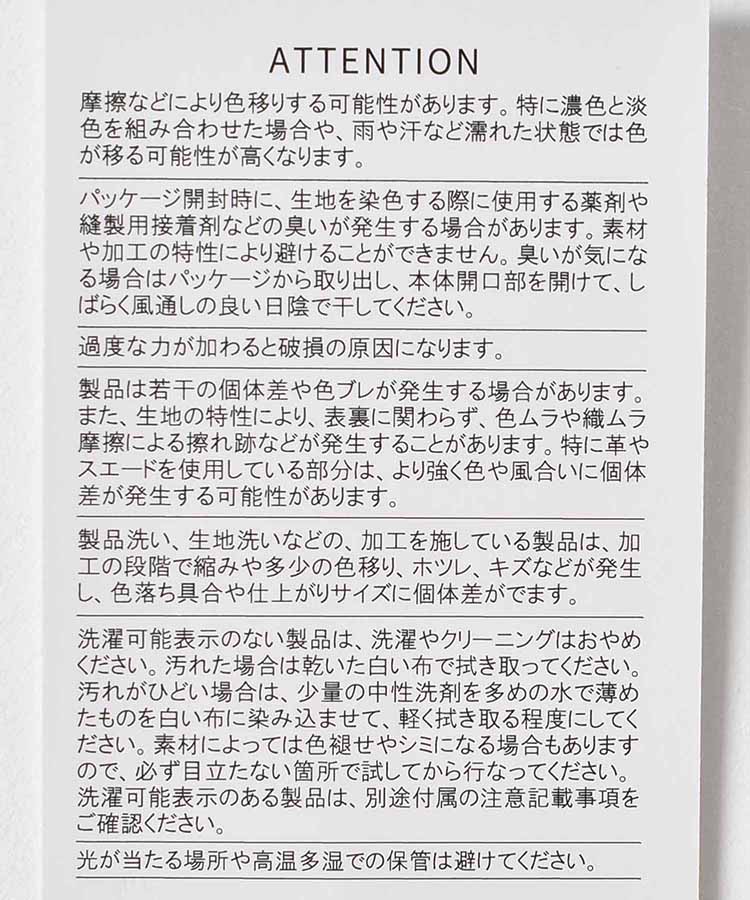 ATTENTION
摩擦などにより色移りする可能性があります。特に濃色と淡
色を組み合わせた場合や、雨や汗など濡れた状態では色
が移る可能性が高くなります。
パッケージ開封時に、生地を染色する際に使用する薬剤や
縫製用接着剤などの臭いが発生する場合があります。素材
や加工の特性により避けることができません。臭いが気にな
る場合はパッケージから取り出し、本体開口部を開けて、し
ばらく風通しの良い日陰で干してください。
過度な力が加わると破損の原因になります。
製品は若干の個体差や色ブレが発生する場合があります。
また、生地の特性により、表裏に関わらず、色ムラや織ムラ
摩擦による擦れ跡などが発生することがあります。特に革や
スエードを使用している部分は、より強く色や風合いに個体
差が発生する可能性があります。
製品洗い、生地洗いなどの、加工を施している製品は、加
工の段階で縮みや多少の色移り、ホツレ、キズなどが発生
し、色落ち具合や仕上がりサイズに個体差がでます。
洗濯可能表示のない製品は、洗濯やクリーニングはおやめ
ください。汚れた場合は乾いた白い布で拭き取ってください。
汚れがひどい場合は、少量の中性洗剤を多めの水で薄め
たものを白い布に染み込ませて、軽く拭き取る程度にしてく
ださい。素材によっては色褪せやシミになる場合もあります
ので、必ず目立たない箇所で試してから行なってください。
洗濯可能表示のある製品は、別途付属の注意記載事項を
ご確認ください。
光が当たる場所や高温多湿での保管は避けてください。